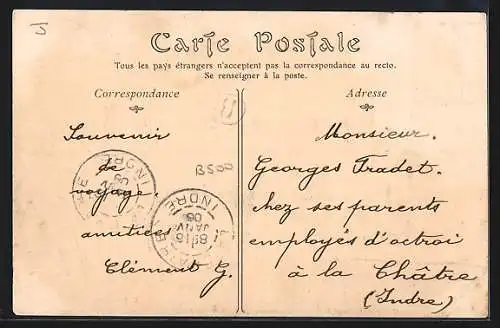 J
Carte Postale
Tous les pays étrangers n'acceptent pas la correspondance au recto.
Se renseigner à la poste.
Correspondance
Adresse
Souvenir
de
voyage.
amitiées
Clément G.
B500
Monsieur.
Georges Tradet.
chez ses parents
employés d'octroi
à la Châtre
(Indre)
INDRE
8 15
JANV
05